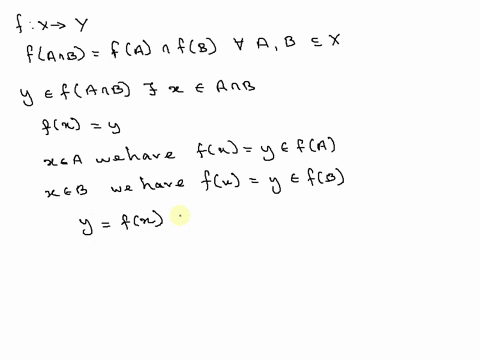 f : X → Y
f(A∩B) = f(A) ∩ f(B) ∀ A, B ⊆ X
y ∈ f(A∩B) ∃ x ∈ A∩B
f(x) = y
x∈A we have f(x) = y ∈ f(A)
x∈B we have f(x) = y ∈ f(B)
y = f(x)